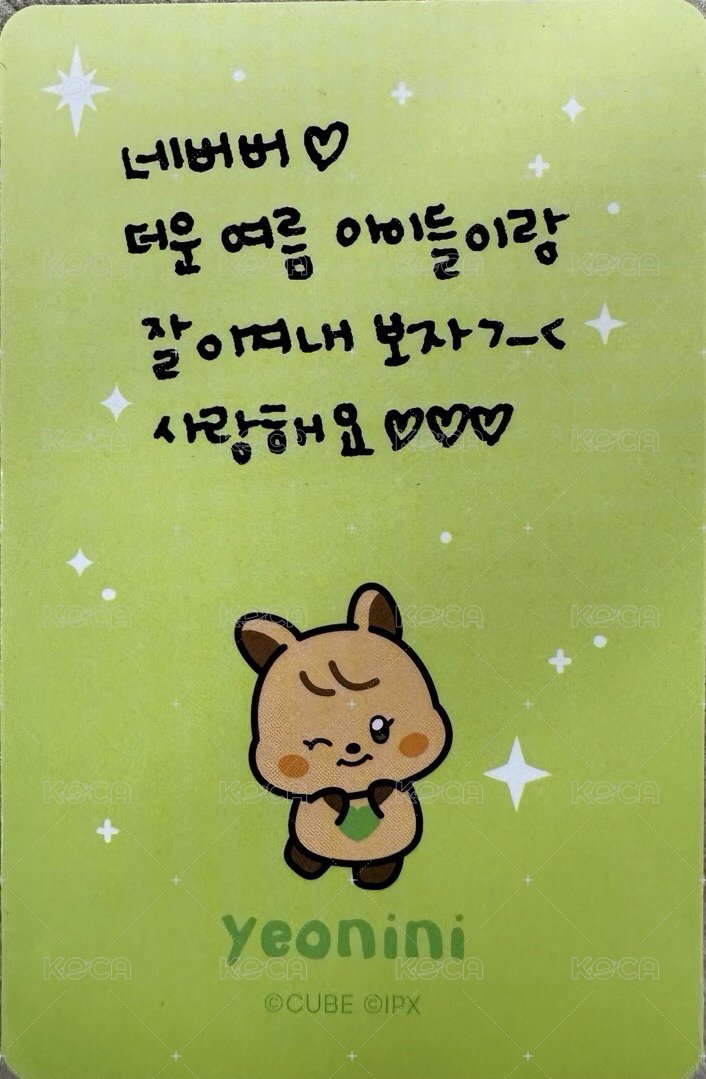 네버버♡
더운 여름 아이들이랑
잘 이겨내 보자ㄱ-<
사랑해요♡♡♡
yeonini
©CUBE ©IPX
KOCA